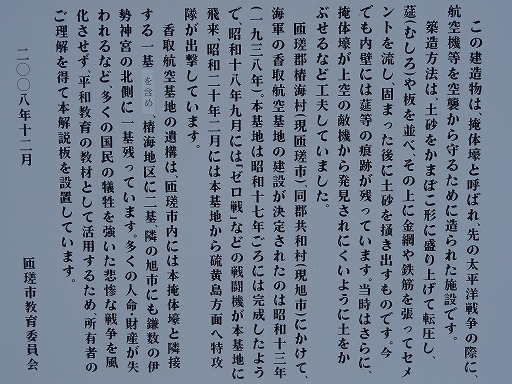 この建造物は、掩体壕と呼ばれ、先の太平洋戦争の際に、
航空機等を空襲から守るために造られた施設です。
築造方法は、土砂をかまぼこ形に盛り上げて転圧し、
莚(むしろ)や板を並べ、その上に金網や鉄筋を張ってセメ
ントを流し、固まった後に土砂を掻き出すものです。今
でも内壁には莚等の痕跡が残っています。当時はさらに、
掩体壕が上空の敵機から発見されにくいように土をか
ぶせるなど工夫していました。
匝瑳郡椿海村(現匝瑳市)、同郡共和村(現旭市)にかけて、
海軍の香取航空基地の建設が決定されたのは昭和十三年
(一九三八年)。本基地は昭和十七年ごろには完成したよう
で、昭和十八年九月には「ゼロ戦」などの戦闘機が本基地に
飛来、昭和二十年二月には本基地から硫黄島方面へ特攻
隊が出撃しています。
香取航空基地の遺構は、匝瑳市内には本掩体壕と隣接
する一基を含め、椿海地区に二基、隣の旭市にも鎌数の伊
勢神宮の北側に一基残っています。多くの人命・財産が失
われるなど、多くの国民の犠牲を強いた悲惨な戦争を風
化させず、「平和教育の教材」として活用するため、所有者の
ご理解を得て本解説板を設置しています。
二〇〇八年十二月
匝瑳市教育委員会